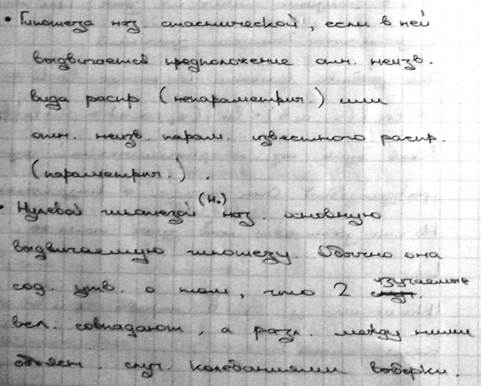 • Гипотеза наз. статистической, если в ней
выдвигается предположение отн. неизв.
вида распр (непараметрич.) или
отн. неизв. парам. известного распр.
(параметрич.).
• Нулевой гипотезой (H₀) наз. основную
выдвигаемую гипотезу. Обычно она
сод. утв. о том, что 2 изучаемые
вел. совпадают, а разл. между ними
объясн. случ. колебаниями выборки.